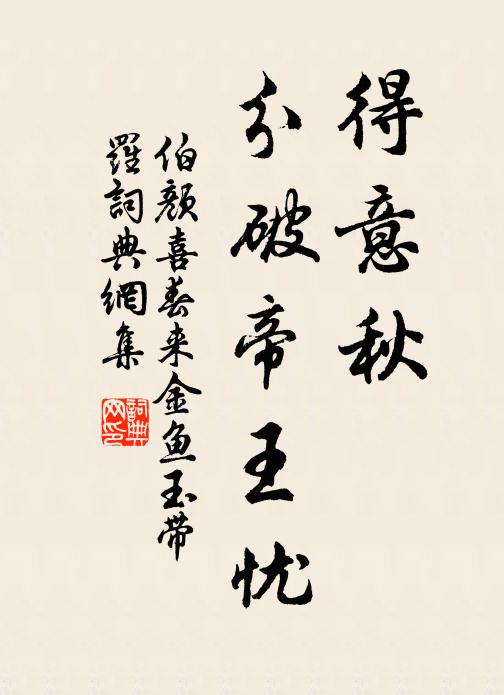 得意秋
分破帝王忧
伯颜喜春来金鱼玉带
羅詞典網集
詞典网印